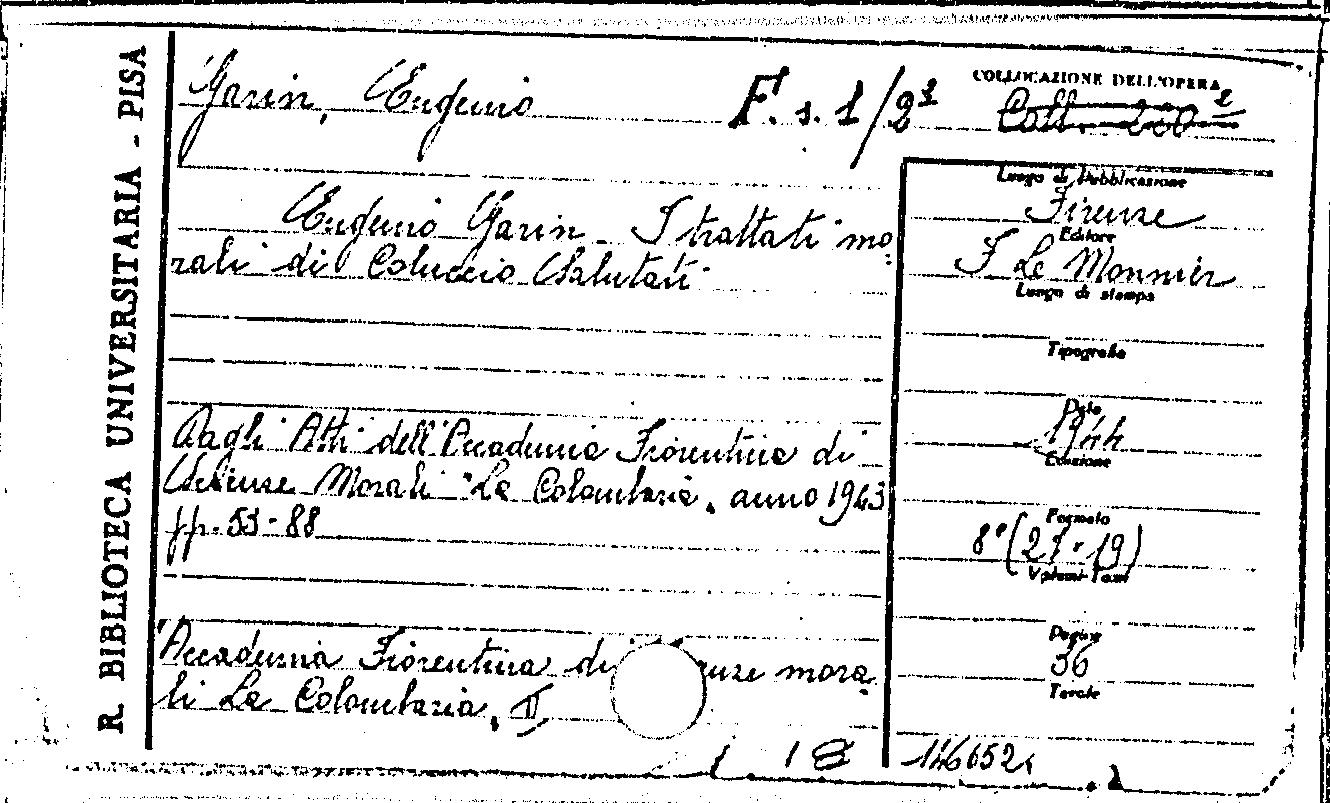 R. BIBLIOTECA UNIVERSITARIA - PISA
COLLOCAZIONE DELL'OPERA
Garin, Eugenio
F. s. 1/2¹
Coll. 200²
Eugenio Garin - I trattati mo-
rali di Coluccio Salutati
Dagli Atti dell'Accademia Fiorentina di
Scienze Morali "La Colombaria, anno 1943
pp. 53-88
Accademia Fiorentina di nze mora-
li La Colombaria, II,
Luogo di Pubblicazione
Firenze
Editore
F Le Monnier
Luogo di stampa
Tipografia
Data
1944
Edizione
Formato
8° (27-19)
Volumi-Tomi
Pagine
36
Tavole
18
146652